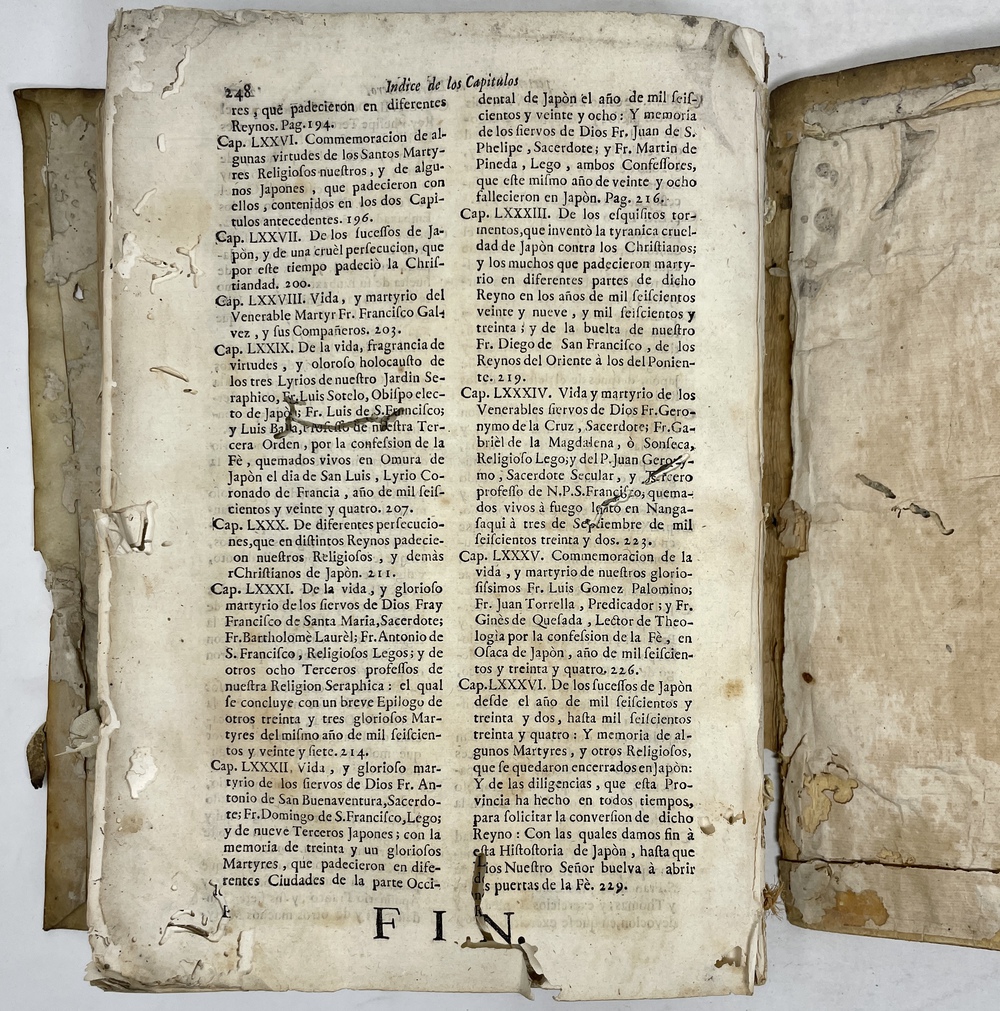 248
Indice de los Capitulos
res, que padecieron en diferentes
Reynos. Pag.194.
Cap. LXXVI. Commemoracion de al-
gunas virtudes de los Santos Marty-
res Religioſos nueſtros, y de algu-
nos Japones, que padecieron con
ellos, contenidos en los dos Capi-
tulos antecedentes. 196.
Cap. LXXVII. De los ſuceſſos de Ja-
pòn, y de una cruèl perſecucion, que
por eſte tiempo padeciò la Chriſ-
tiandad. 200.
Cap. LXXVIII. Vida, y martyrio del
Venerable Martyr Fr. Franciſco Gal-
vez, y ſus Compañeros. 203.
Cap. LXXIX. De la vida, fragrancia de
virtudes, y oloroſo holocauſto de
los tres Lyrios de nueſtro Jardin Se-
raphico, Fr. Luis Sotelo, Obiſpo elec-
to de Japòn; Fr. Luis de S. Franciſco;
y Luis Baba, profeſſo de nueſtra Ter-
cera Orden, por la confeſsion de la
Fè, quemados vivos en Omura de
Japòn el dia de San Luis, Lyrio Co-
ronado de Francia, año de mil ſeiſ-
cientos y veinte y quatro. 207.
Cap. LXXX. De diferentes perſecucio-
nes, que en diſtintos Reynos padecie-
on nueſtros Religioſos, y demàs
rChriſtianos de Japòn. 211.
Cap. LXXXI. De la vida, y glorioſo
martyrio de los ſiervos de Dios Fray
Franciſco de Santa Maria, Sacerdote;
Fr. Bartholomè Laurèl; Fr. Antonio de
S. Franciſco, Religioſos Legos; y de
otros ocho Terceros profeſſos de
nueſtra Religion Seraphica: el qual
ſe concluye con un breve Epilogo de
otros treinta y tres glorioſos Mar-
tyres del miſmo año de mil ſeiſcien-
tos y veinte y ſiete. 214.
Cap. LXXXII. Vida, y glorioſo mar-
tyrio de los ſiervos de Dios Fr. An-
tonio de San Buenaventura, Sacerdo-
te; Fr. Domingo de S. Franciſco, Lego;
y de nueve Terceros Japones; con la
memoria de treinta y un glorioſos
Martyres, que padecieron en dife-
rentes Ciudades de la parte Occi-
dental de Japòn el año de mil ſeiſ-
cientos y veinte y ocho: Y memoria
de los ſiervos de Dios Fr. Juan de S.
Phelipe, Sacerdote; y Fr. Martin de
Pineda, Lego, ambos Confeſſores,
que eſte miſmo año de veinte y ocho
fallecieron en Japòn. Pag. 216.
Cap. LXXXIII. De los eſquiſitos tor-
mentos, que inventò la tyranica cruel-
dad de Japòn contra los Chriſtianos;
y los muchos que padecieron marty-
rio en diferentes partes de dicho
Reyno en los años de mil ſeiſcientos
veinte y nueve, y mil ſeiſcientos y
treinta; y de la buelta de nueſtro
Fr. Diego de San Franciſco, de los
Reynos del Oriente à los del Ponien-
te. 219.
Cap. LXXXIV. Vida y martyrio de los
Venerables ſiervos de Dios Fr. Gero-
nymo de la Cruz, Sacerdote; Fr. Ga-
brièl de la Magdalena, ò Sonſeca,
Religioſo Lego; y del P. Juan Gerony-
mo, Sacerdote Secular, y Tercero
profeſſo de N.P.S. Franciſco, quema-
dos vivos à fuego lento en Nanga-
ſaqui à tres de Septiembre de mil
ſeiſcientos treinta y dos. 223.
Cap. LXXXV. Commemoracion de la
vida, y martyrio de nueſtros glorio-
ſiſsimos Fr. Luis Gomez Palomino;
Fr. Juan Torrella, Predicador; y Fr.
Ginès de Queſada, Lector de Theo-
logia por la confeſsion de la Fè, en
Oſaca de Japòn, año de mil ſeiſcien-
tos y treinta y quatro. 226.
Cap. LXXXVI. De los ſuceſſos de Japòn
deſde el año de mil ſeiſcientos y
treinta y dos, haſta mil ſeiſcientos
treinta y quatro: Y memoria de al-
gunos Martyres, y otros Religioſos,
que ſe quedaron encerrados en Japòn:
Y de las diligencias, que eſta Pro-
vincia ha hecho en todos tiempos,
para ſolicitar la converſion de dicho
Reyno: Con las quales damos fin à
eſta Hiſtoſtoria de Japòn, haſta que
Dios Nueſtro Señor buelva à abrir
las puertas de la Fè. 229.
FIN.